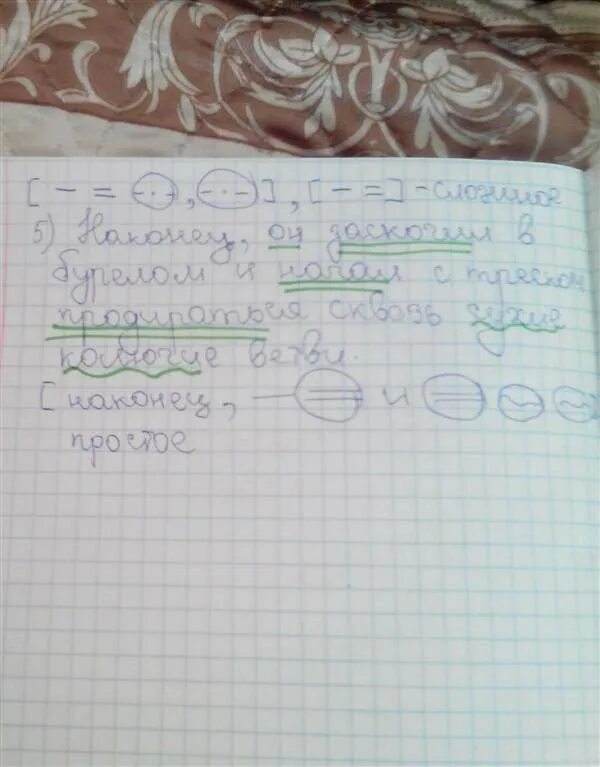 [ – = (–·–), (–·–) ], [ – = ] - сложное
5) Наконец, он заскочил в
бурелом и начал с треском
продираться сквозь сухие
колючие ветви.
[ наконец, — = и = ~ ~ ]
простое